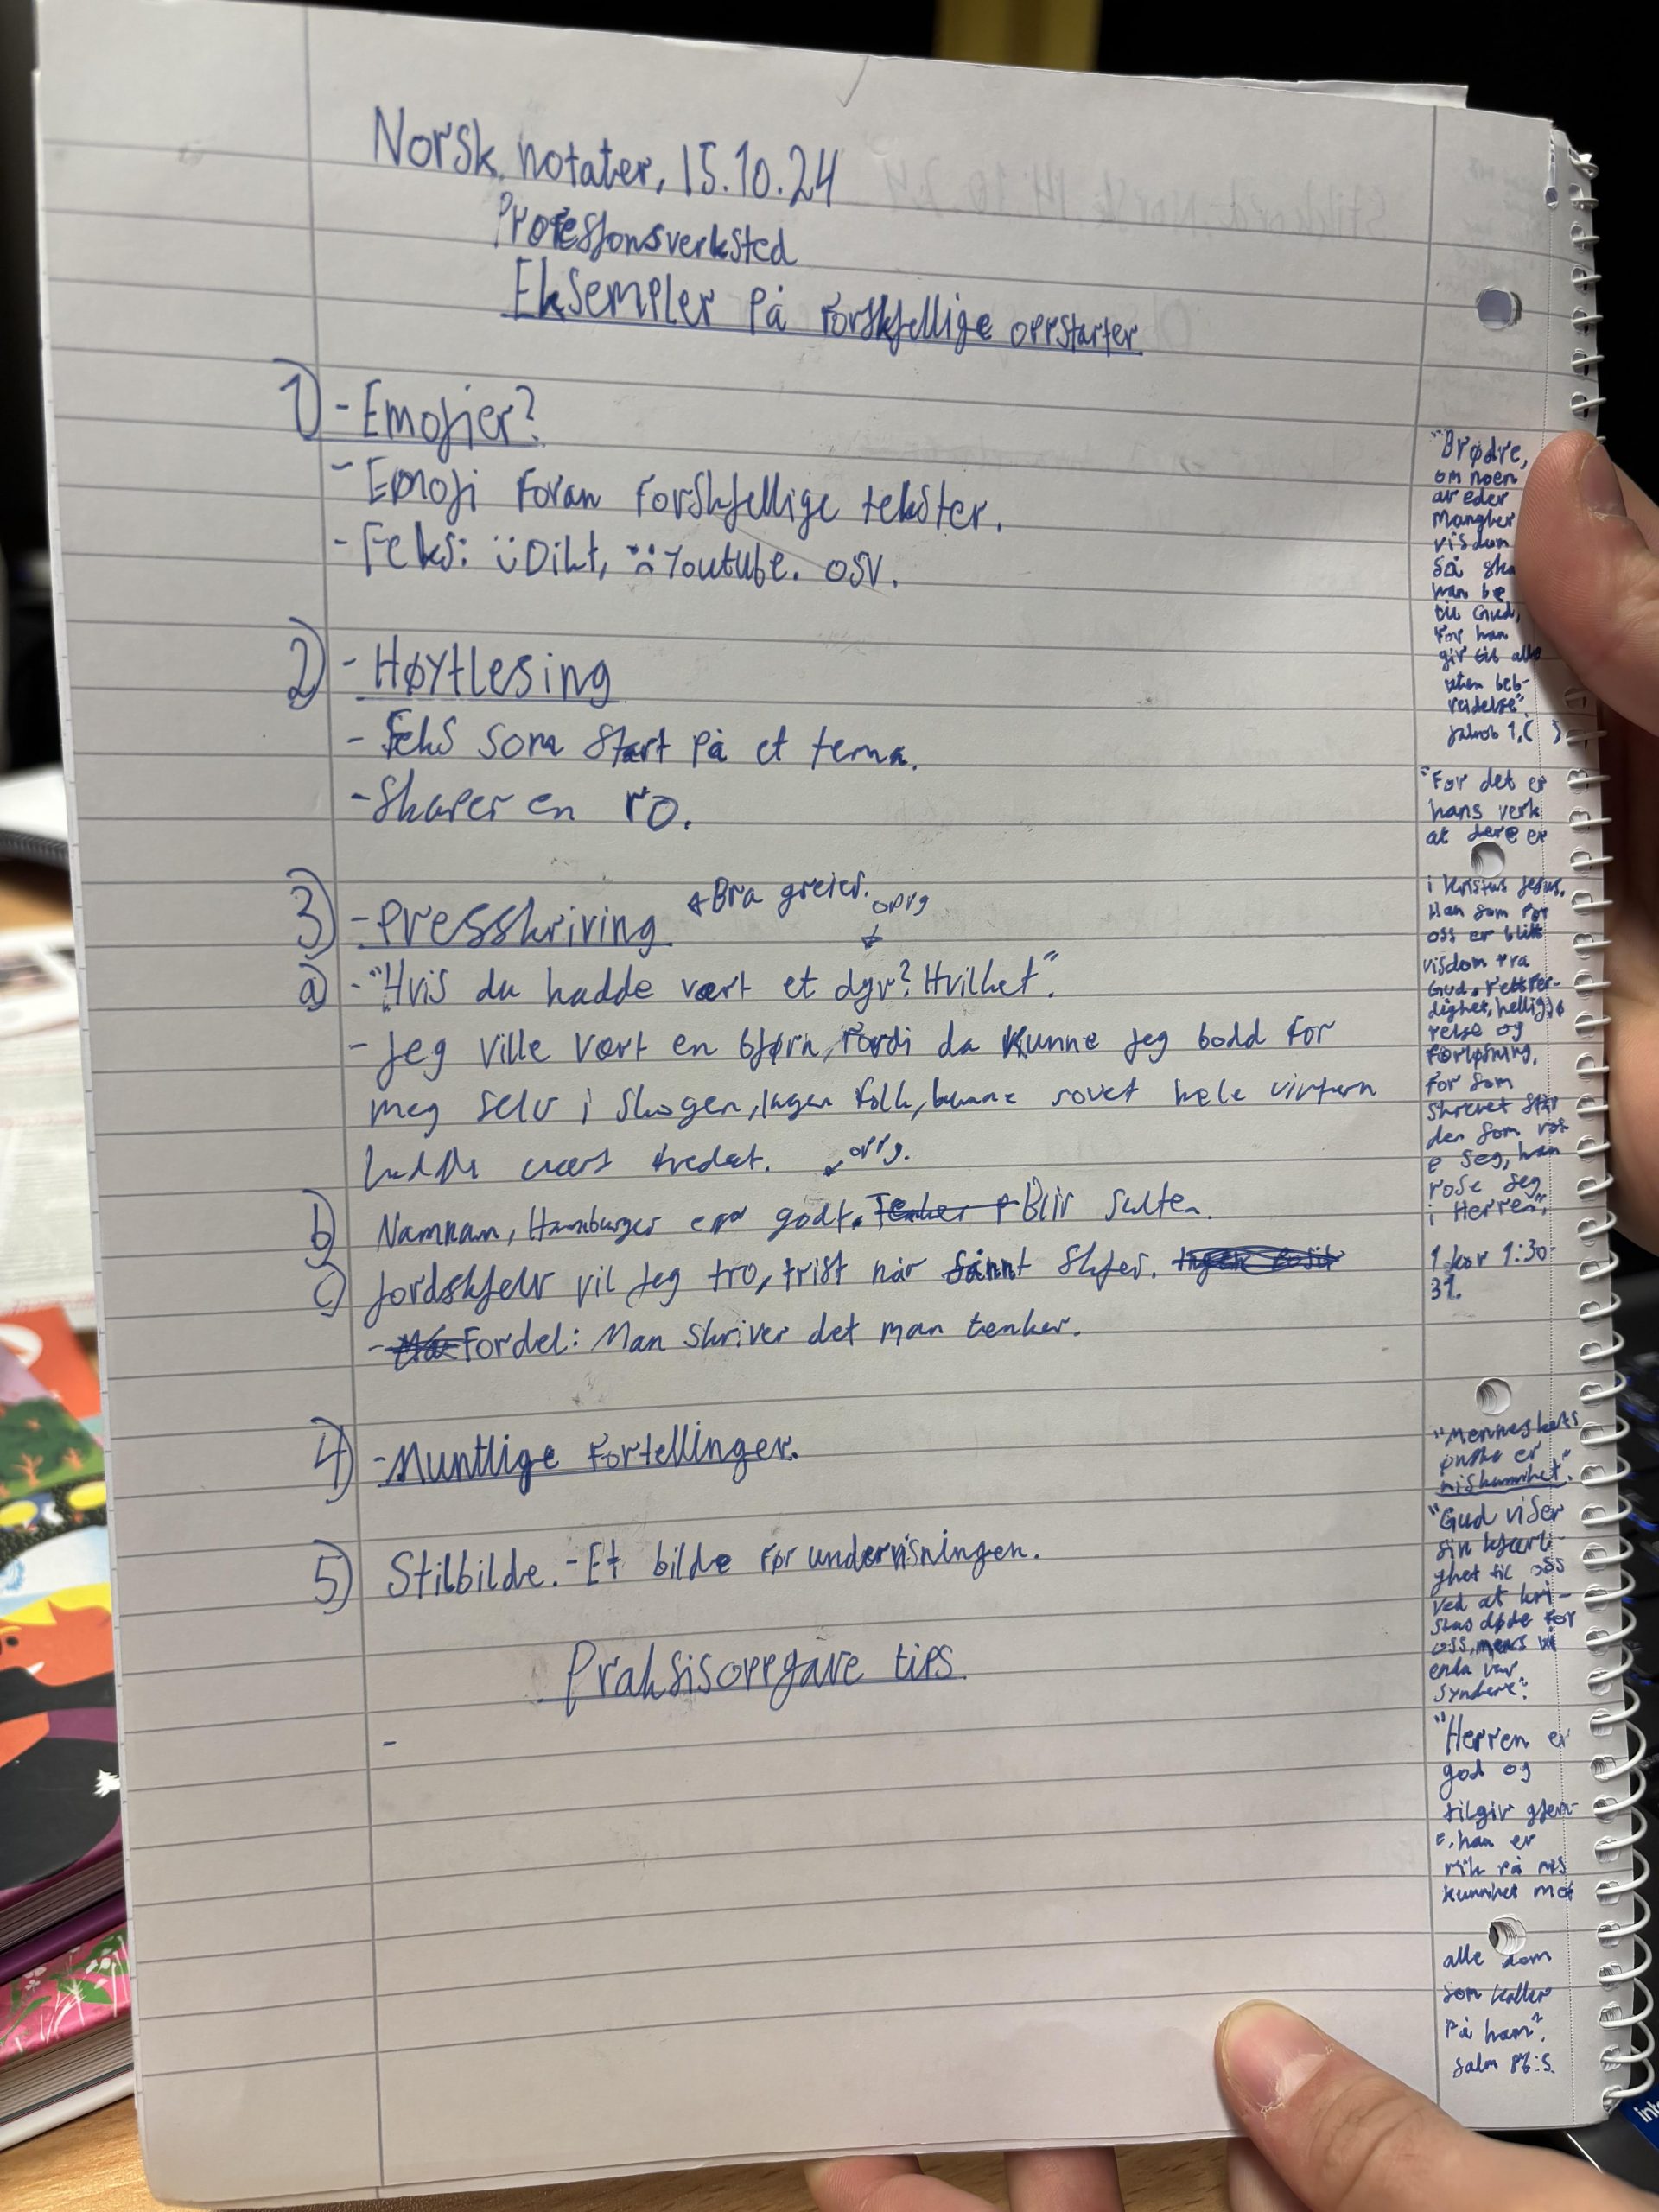 Norsk notater, 15.10.24
Profesjonsverksted
Eksempler på forskjellige oppstarter
1) - Emojier?
- Emoji foran forskjellige tekster.
- Feks: Dikt, Youtube. osv.
2) - Høytlesing
- Feks som start på et tema.
- Skaper en ro.
3) - Presskriving Bra greier. oppg
a) - "Hvis du hadde vært et dyr? Hvilket".
- Jeg ville vært en bjørn, fordi da kunne jeg bodd for
meg selv i skogen, ingen folk, kunne sovet hele vintern
hadde vært fredet. oppg.
b) Namnam, Hamburger er godt. Blir sulten.
c) Jordskjelv vil jeg tro, trist når sånnt skjer.
- Fordel: Man skriver det man tenker.
4) - Muntlige fortellinger.
5) Stilbilde. - Et bilde før undervisningen.
Praksisoppgave tips.
-
"Brødre,
om noen
av eder
mangler
visdom
så ska
han be
til Gud,
for han
gir til alle
uten beb-
reidelse".
Jakob 1,( )
"For det er
hans verk
at dere er
i Kristus Jesus.
Han som for
oss er blitt
visdom fra
Gud, rettfer-
dighet, helliggjø
relse og
forløsning,
for som
skrevet står
den som ros
e seg, han
rose seg
i Herren",
1 kor 1:30-
31.
"Menneskets
ønske er
miskunnhet".
"Gud viser
sin kjærli-
ghet til oss
ved at kri-
stus døde for
oss, mens vi
enda var
syndere".
"Herren er
god og
tilgir gjern-
e, han er
rik på mis
kunnhet mot
alle dem
som kaller
på ham".
Salm 86:5.